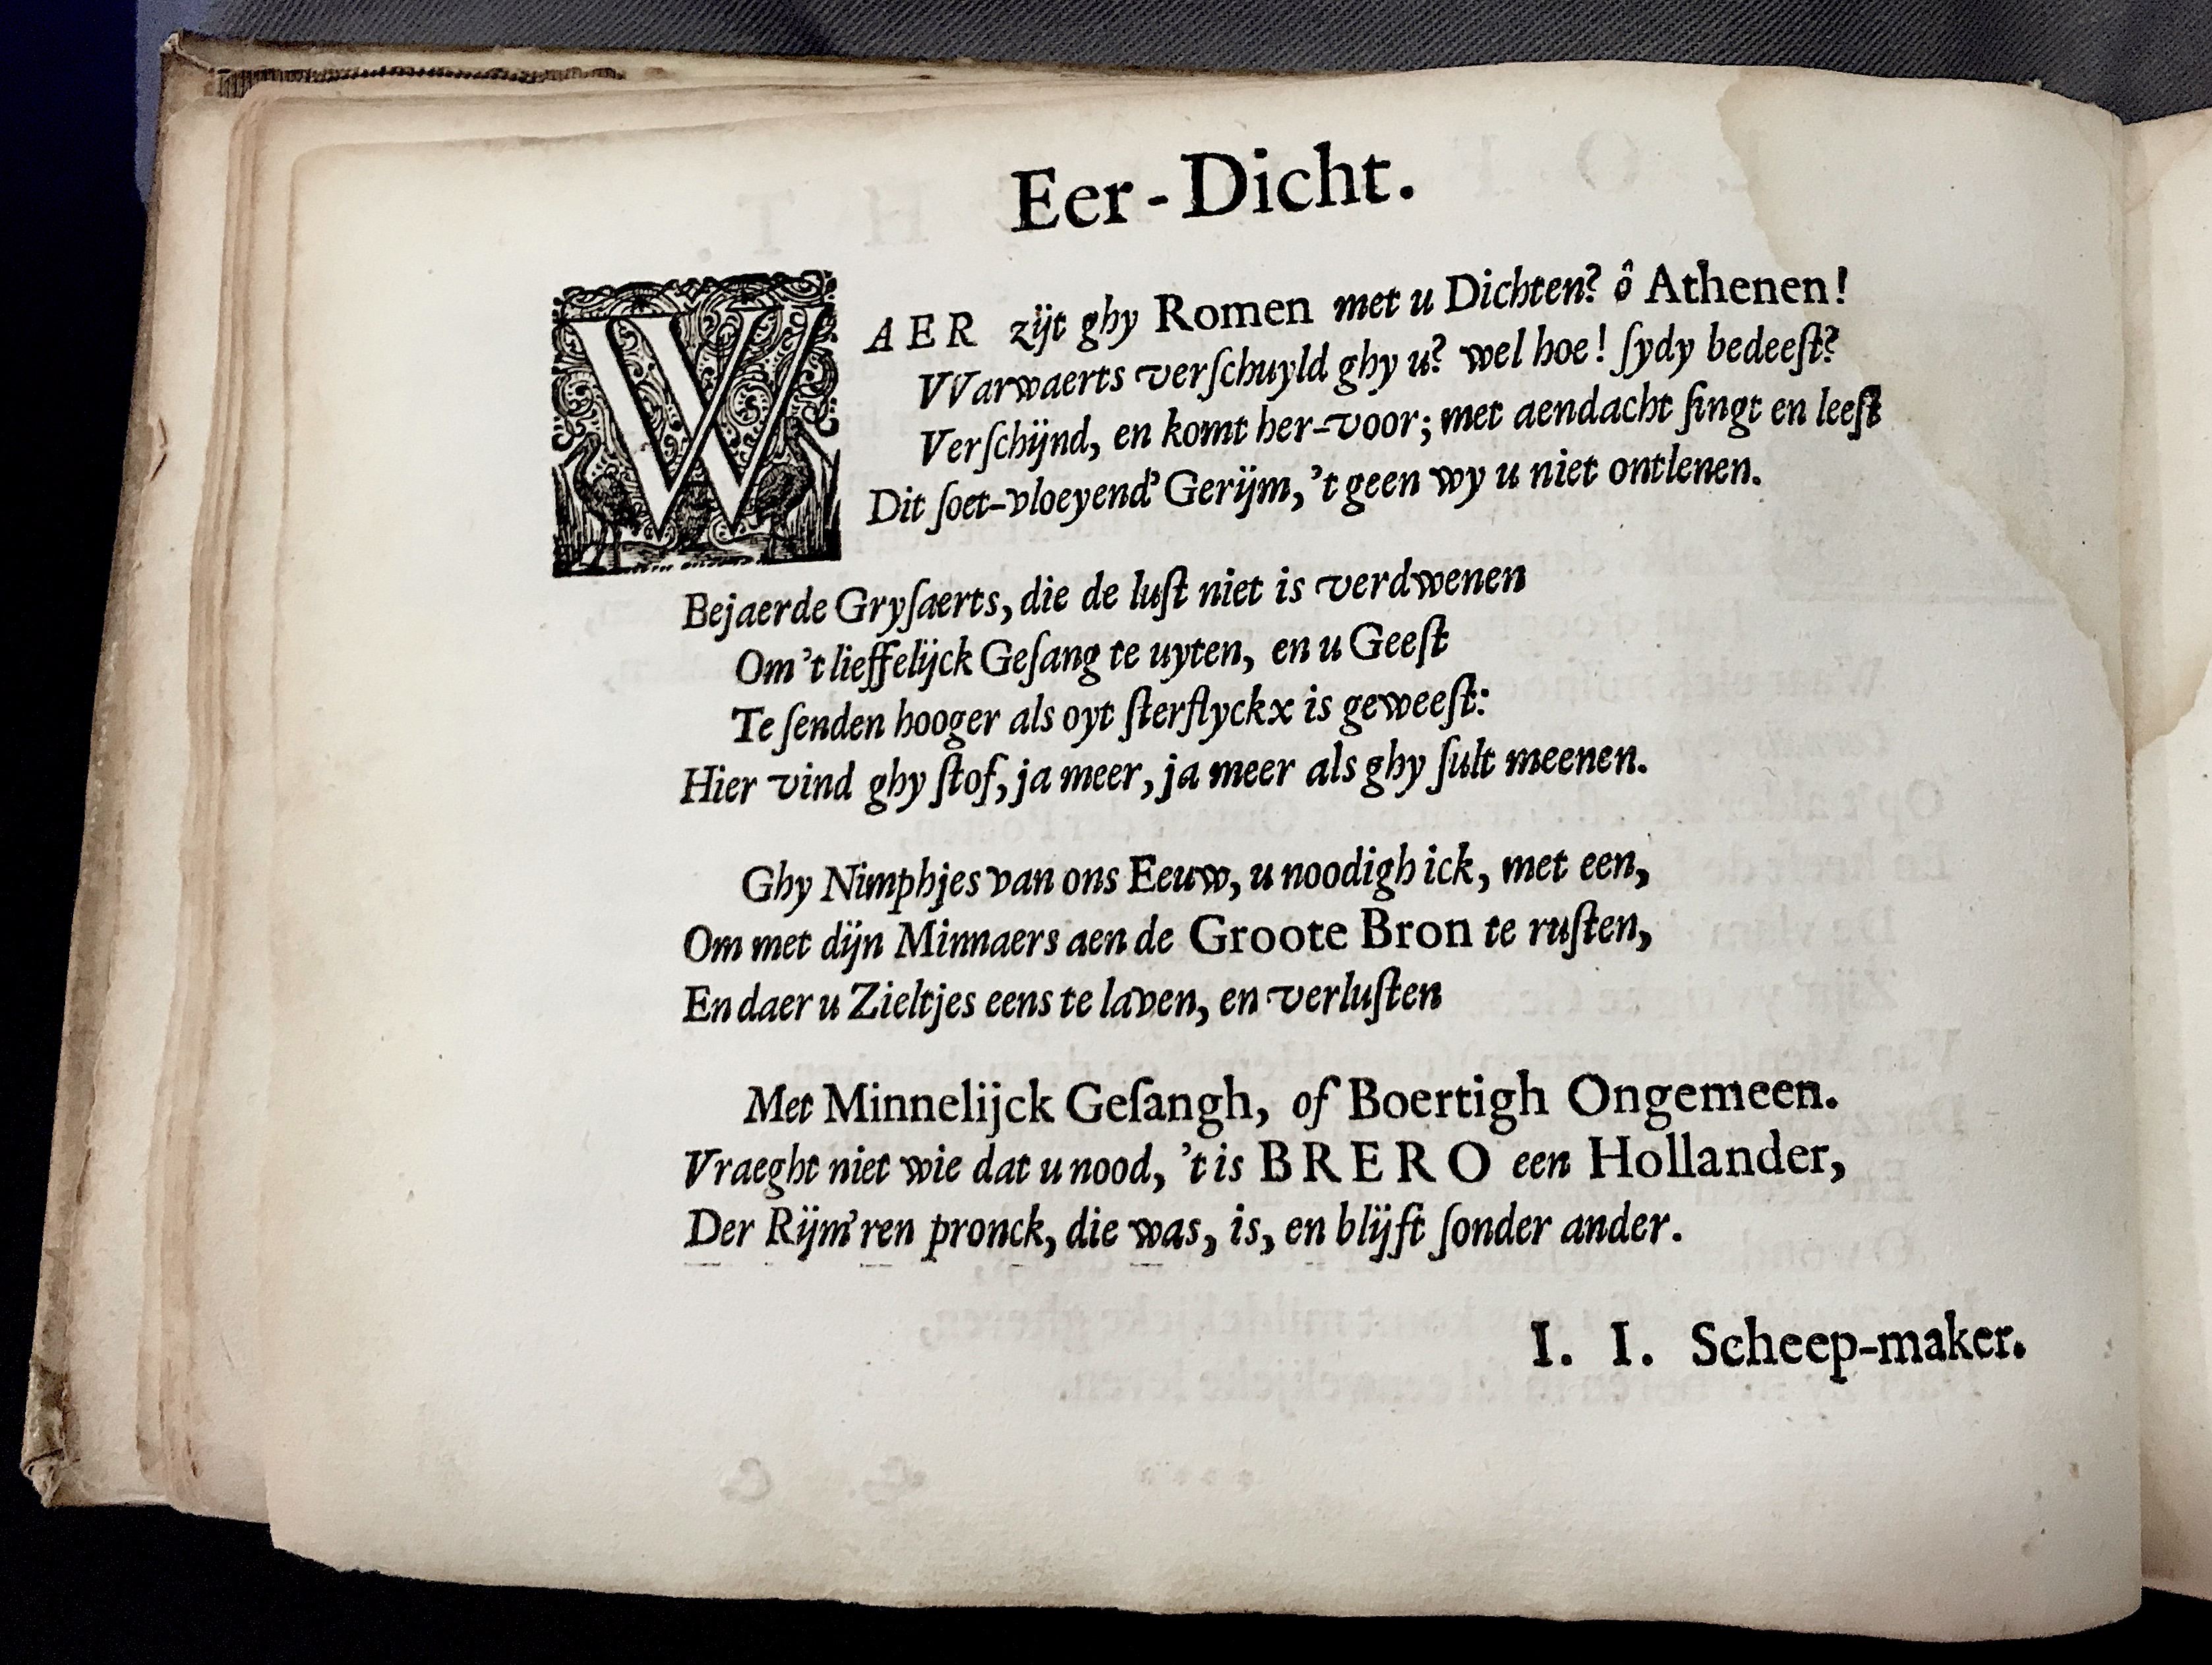 Eer-Dicht.
WAER zijt ghy Romen met u Dichten? ô Athenen!
VVarwaerts verſchuyld ghy u? wel hoe! ſydy bedeeſt?
Verſchijnd, en komt her-voor; met aendacht ſingt en leeſt
Dit ſoet-vloeyend' Gerijm, 't geen wy u niet ontlenen.
Bejaerde Gryſaerts, die de luſt niet is verdwenen
Om 't lieffelijck Geſang te uyten, en u Geeſt
Te ſenden hooger als oyt ſterflyckx is geweeſt:
Hier vind ghy ſtof, ja meer, ja meer als ghy ſult meenen.
Ghy Nimphjes van ons Eeuw, u noodigh ick, met een,
Om met dijn Minnaers aen de Groote Bron te ruſten,
En daer u Zieltjes eens te laven, en verluſten
Met Minnelijck Geſangh, of Boertigh Ongemeen.
Vraeght niet wie dat u nood, 't is BRERO een Hollander,
Der Rijm'ren pronck, die was, is, en blijft ſonder ander.
I. I. Scheep-maker.